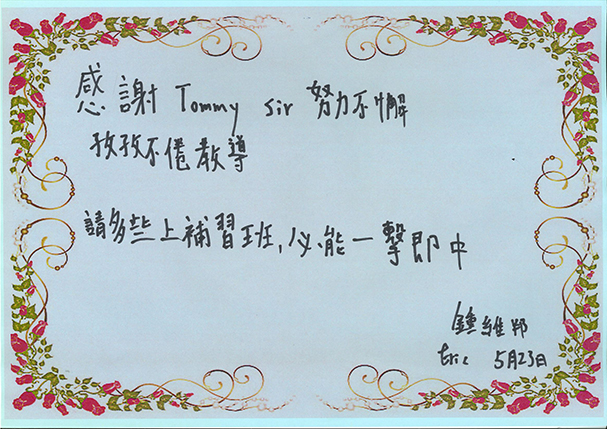 感謝 Tommy sir 努力不懈
孜孜不倦教導
請多些上補習班,必能一擊即中
鍾維邦
Eric 5月23日